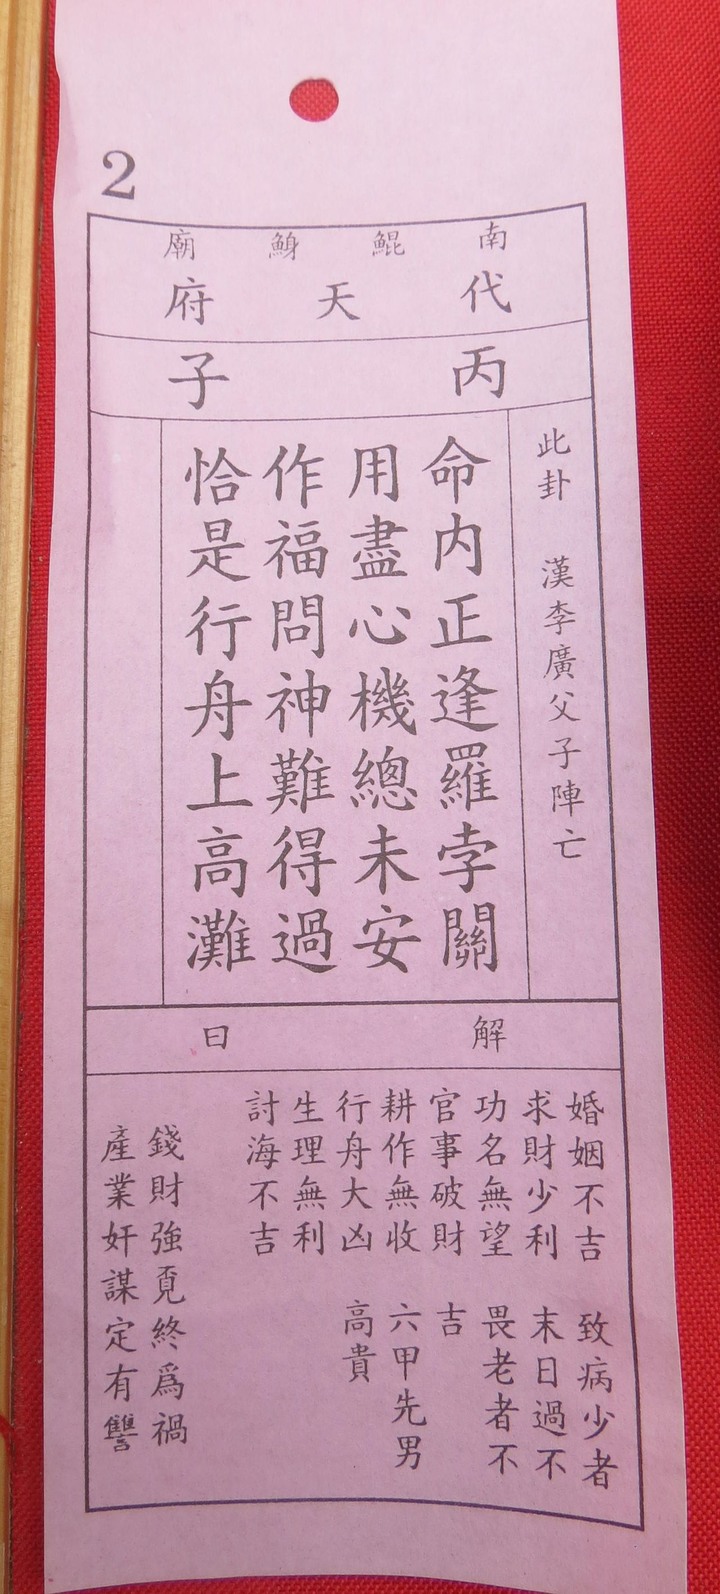 2
南鯤鯓廟
代天府
丙子
此卦 漢李廣父子陣亡
命內正逢羅孛關
用盡心機總未安
作福問神難得過
恰是行舟上高灘
解曰
婚姻不吉
求財少利
功名無望
官事破財
耕作無收
行舟大凶
生理無利
討海不吉
致病少者
末日過不
畏老者不
吉
六甲先男
高貴
錢財強覔終爲禍
產業奸謀定有讐